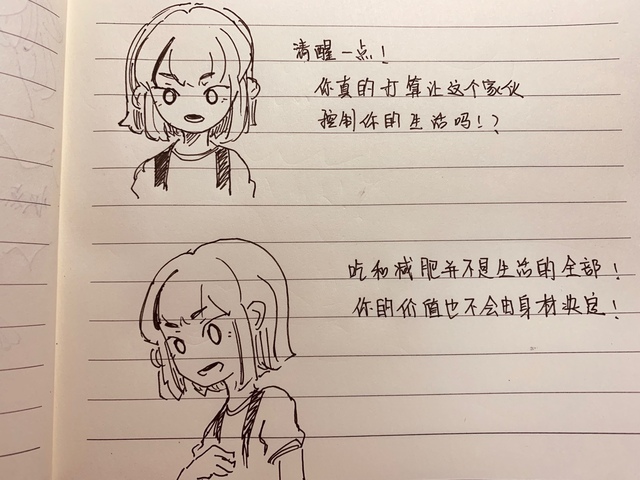 清醒一点!
你真的打算让这个家伙
控制你的生活吗!?
吃和减肥并不是生活的全部!
你的价值也不会由身材决定!